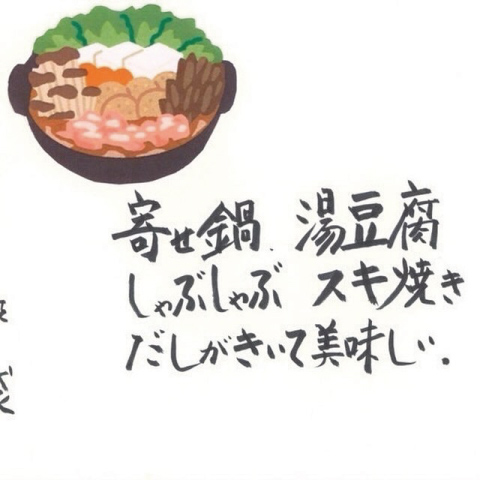 寄せ鍋、湯豆腐
しゃぶしゃぶ スキ焼き
だしがきいて美味しい.